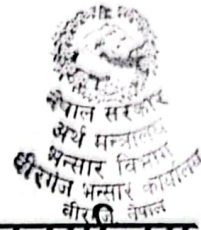 नेपाल सरकार
अर्थ मन्त्रालय
भन्सार विभाग
वीरगंज भन्सार कार्यालय
नेपाल